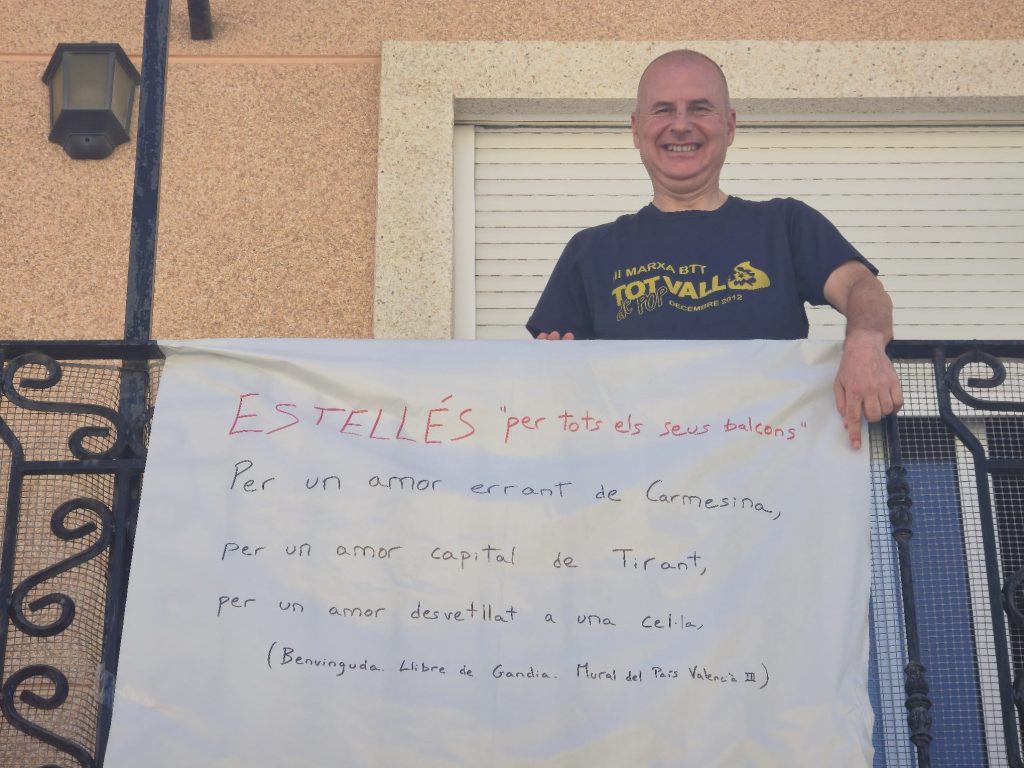 II MARXA BTT
TOT VALL
de POP
DECEMBRE 2012
ESTELLÉS "per tots els seus balcons"
Per un amor errant de Carmesina,
per un amor capital de Tirant,
per un amor desvetllat a una cel·la,
(Benvinguda. Llibre de Gandia. Mural del País Valencià III)